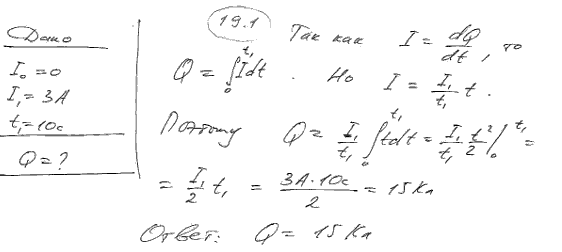 19.1
Дано
I₀ = 0
I₁ = 3А
t₁ = 10с
Q = ?
Так как I = dQ/dt, то
Q = ∫₀^t₁ Idt. Но I = I₁/t₁ t.
Поэтому Q = I₁/t₁ ∫₀^t₁ tdt = I₁/t₁ t²/2 |₀^t₁ =
= I₁/2 t₁ = 3А·10с/2 = 15 Кл
Ответ: Q = 15 Кл